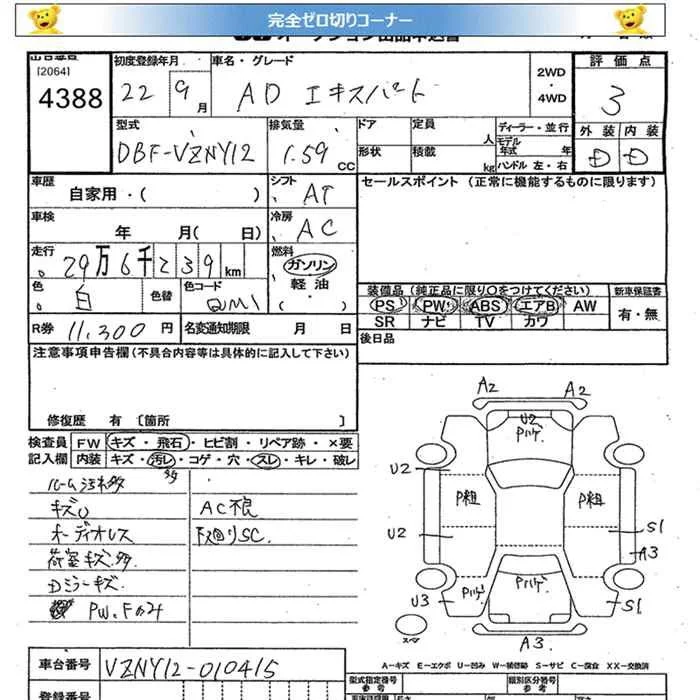 完全ゼロ切りコーナー
[2064]
4388
初度登録年月
22 9月
車名・グレード
AD エキスパート
2WD
・
4WD
評価点
3
型式
DBF-VZNY12
排気量
1.59 CC
ドア
定員
人
形状
積載
kg
ディーラー・並行
モデル年式 年
ハンドル 左・右
外装 内装
D D
車歴
自家用・( )
シフト
AT
セールスポイント (正常に機能するものに限ります)
車検
年 月( 日)
冷房
AC
走行
29万6千239km
燃料
ガソリン
軽油
( ・ )
色
白
色替
色コード
QM1
装備品 (純正品に限り○をつけてください)
新車保証書
PS PW ABS エアB AW
SR ナビ TV カワ
有・無
R券 11,300 円
名変通知期限 月 日
後日品
注意事項申告欄(不具合内容等は具体的に記入して下さい)
修復歴 有 〔箇所 〕
検査員記入欄
FW キズ・飛石・ヒビ割・リペア跡・×要
内装 キズ・汚レ・コゲ・穴・スレ・キレ・破レ
ルーム汚れ多
オーディオレス
荷室キズ多
Dミラーキズ
AC不良
下廻りSC.
A2 A2
U2
Pハゲ
U2
P組 P組
U2 S1
A3
Pハゲ Pハゲ
U3 S1
スペア
A3
A-キズ E-エクボ U-凹み W-補修跡 S-サビ C-腐食 XX-交換済
車台番号
VZNY12-010415
型式指定番号
参考
類別区分番号
参考
登録番号